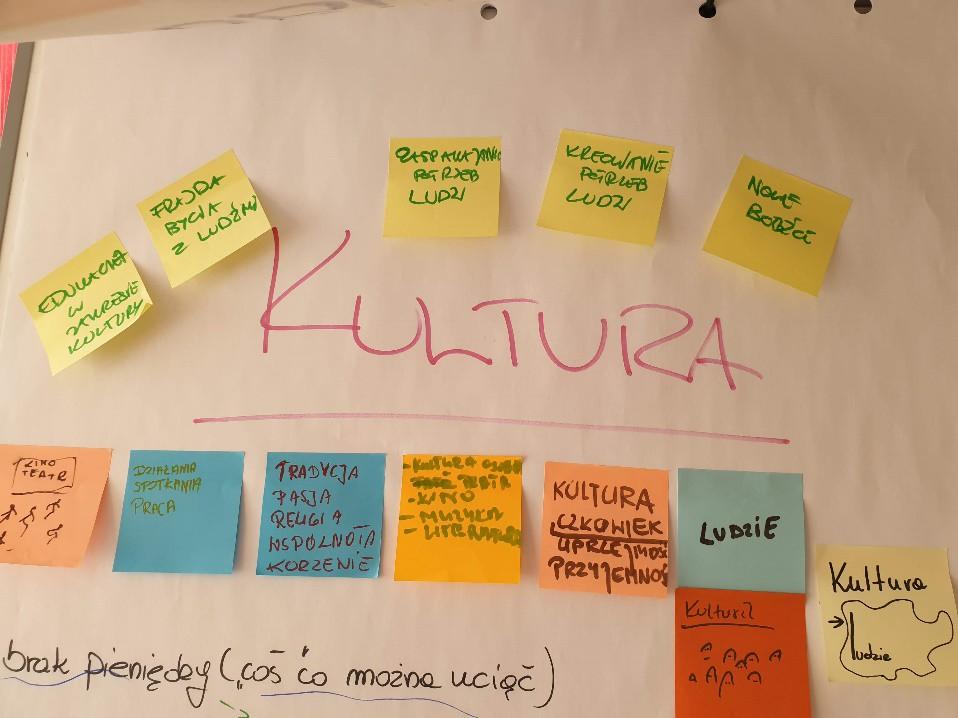 EDUKACJA
W
ZAKRESIE
KULTURY
FRAJDA
BYCIA
Z LUDŹMI
POTRZEB
LUDZI
KREOWANIE
POTRZEB
LUDZI
NOWE
BODŹCE
KULTURA
KINO
TEATR
DZIAŁANIA
SPOTKANIA
PRACA
TRADYCJA
PASJA
RELIGIA
WSPÓLNOTA
KORZENIE
- KULTURA
- KINO
- MUZYKA
- LITERATURA
KULTURA
CZŁOWIEK
UPRZEJMOŚĆ
PRZYJEMNOŚĆ
LUDZIE
Kultura
→ ludzie
brak pieniędzy ("coś co można uciąć")